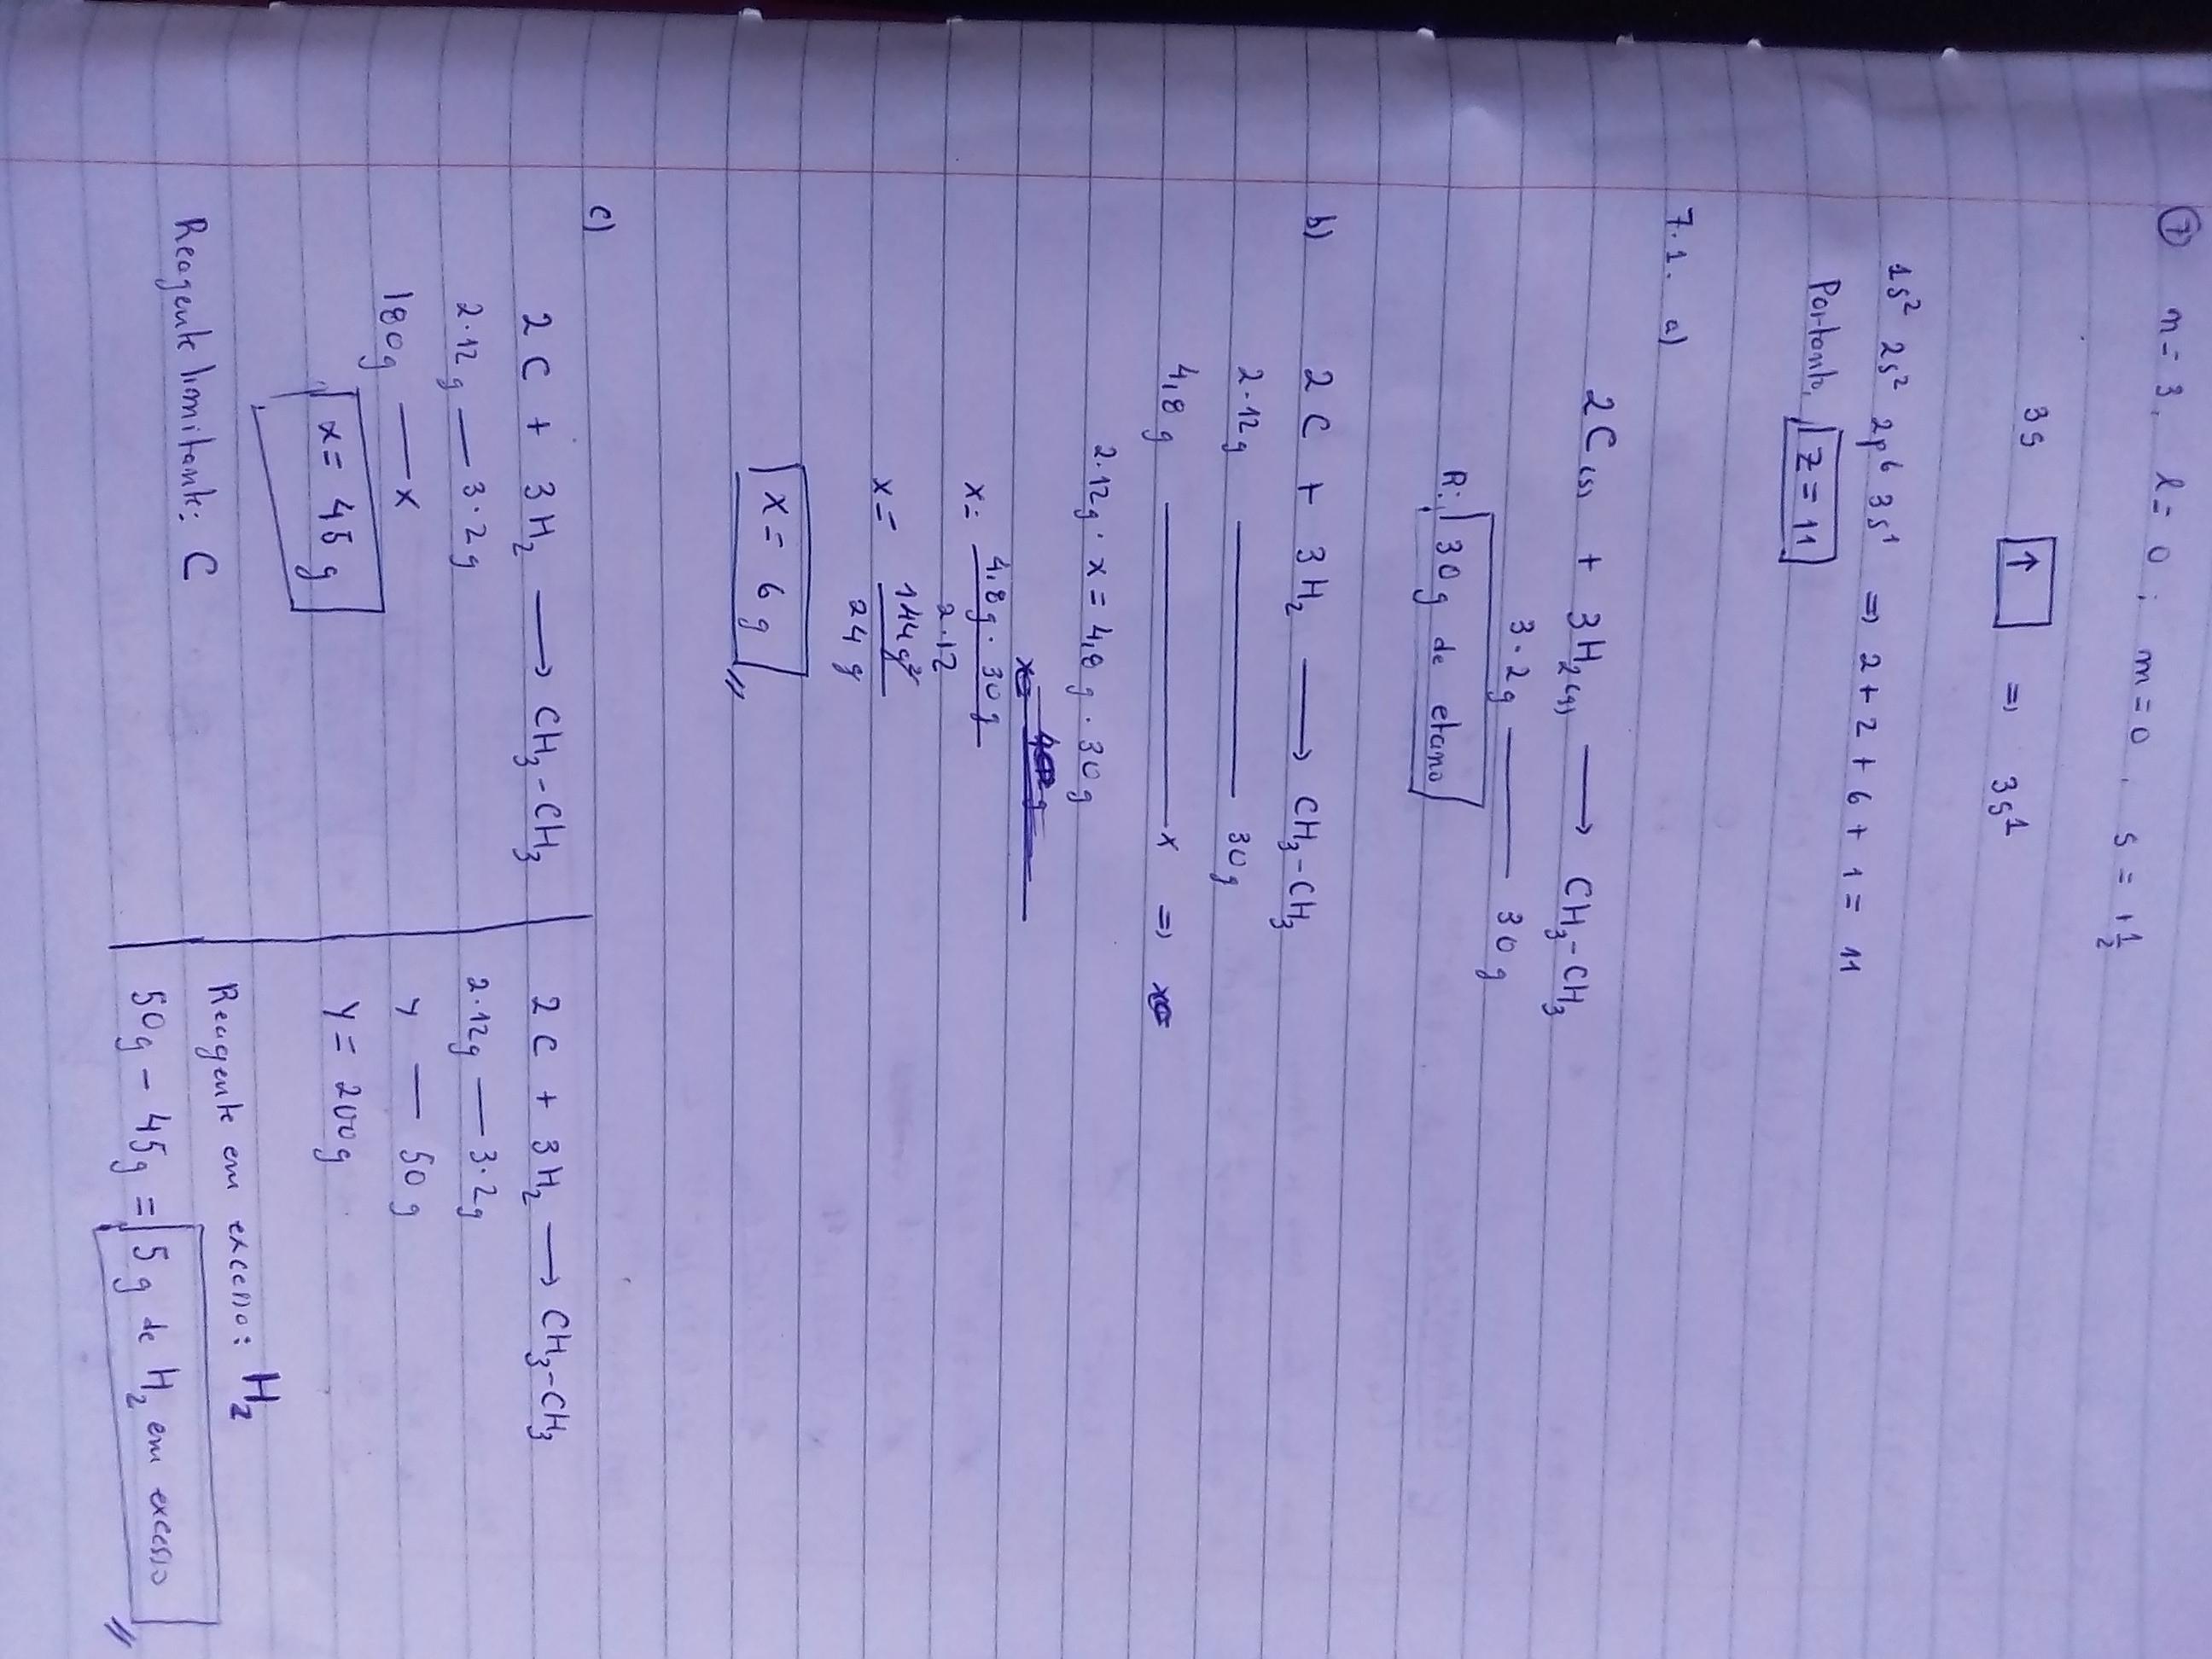 7 n = 3, l = 0; m = 0, s = +1/2
3s ↑ ⇒ 3s¹
1s² 2s² 2p⁶ 3s¹ ⇒ 2 + 2 + 6 + 1 = 11
Portanto, Z = 11
7.1. a)
2C(s) + 3H₂(g) ⟶ CH₃-CH₃
3·2g — 30g
R: 30g de etano
b) 2C + 3H₂ ⟶ CH₃-CH₃
2·12g — 30g
4,8g — x ⇒
2·12g · x = 4,8g · 30g
x = 4,8g · 30g / 2·12
x = 144g² / 24g
x = 6g
c) 2C + 3H₂ ⟶ CH₃-CH₃
2·12g — 3·2g
180g — x
x = 45g
Reagente limitante: C
2C + 3H₂ ⟶ CH₃-CH₃
2·12g — 3·2g
y — 50g
y = 200g
Reagente em excesso: H₂
50g - 45g = 5g de H₂ em excesso